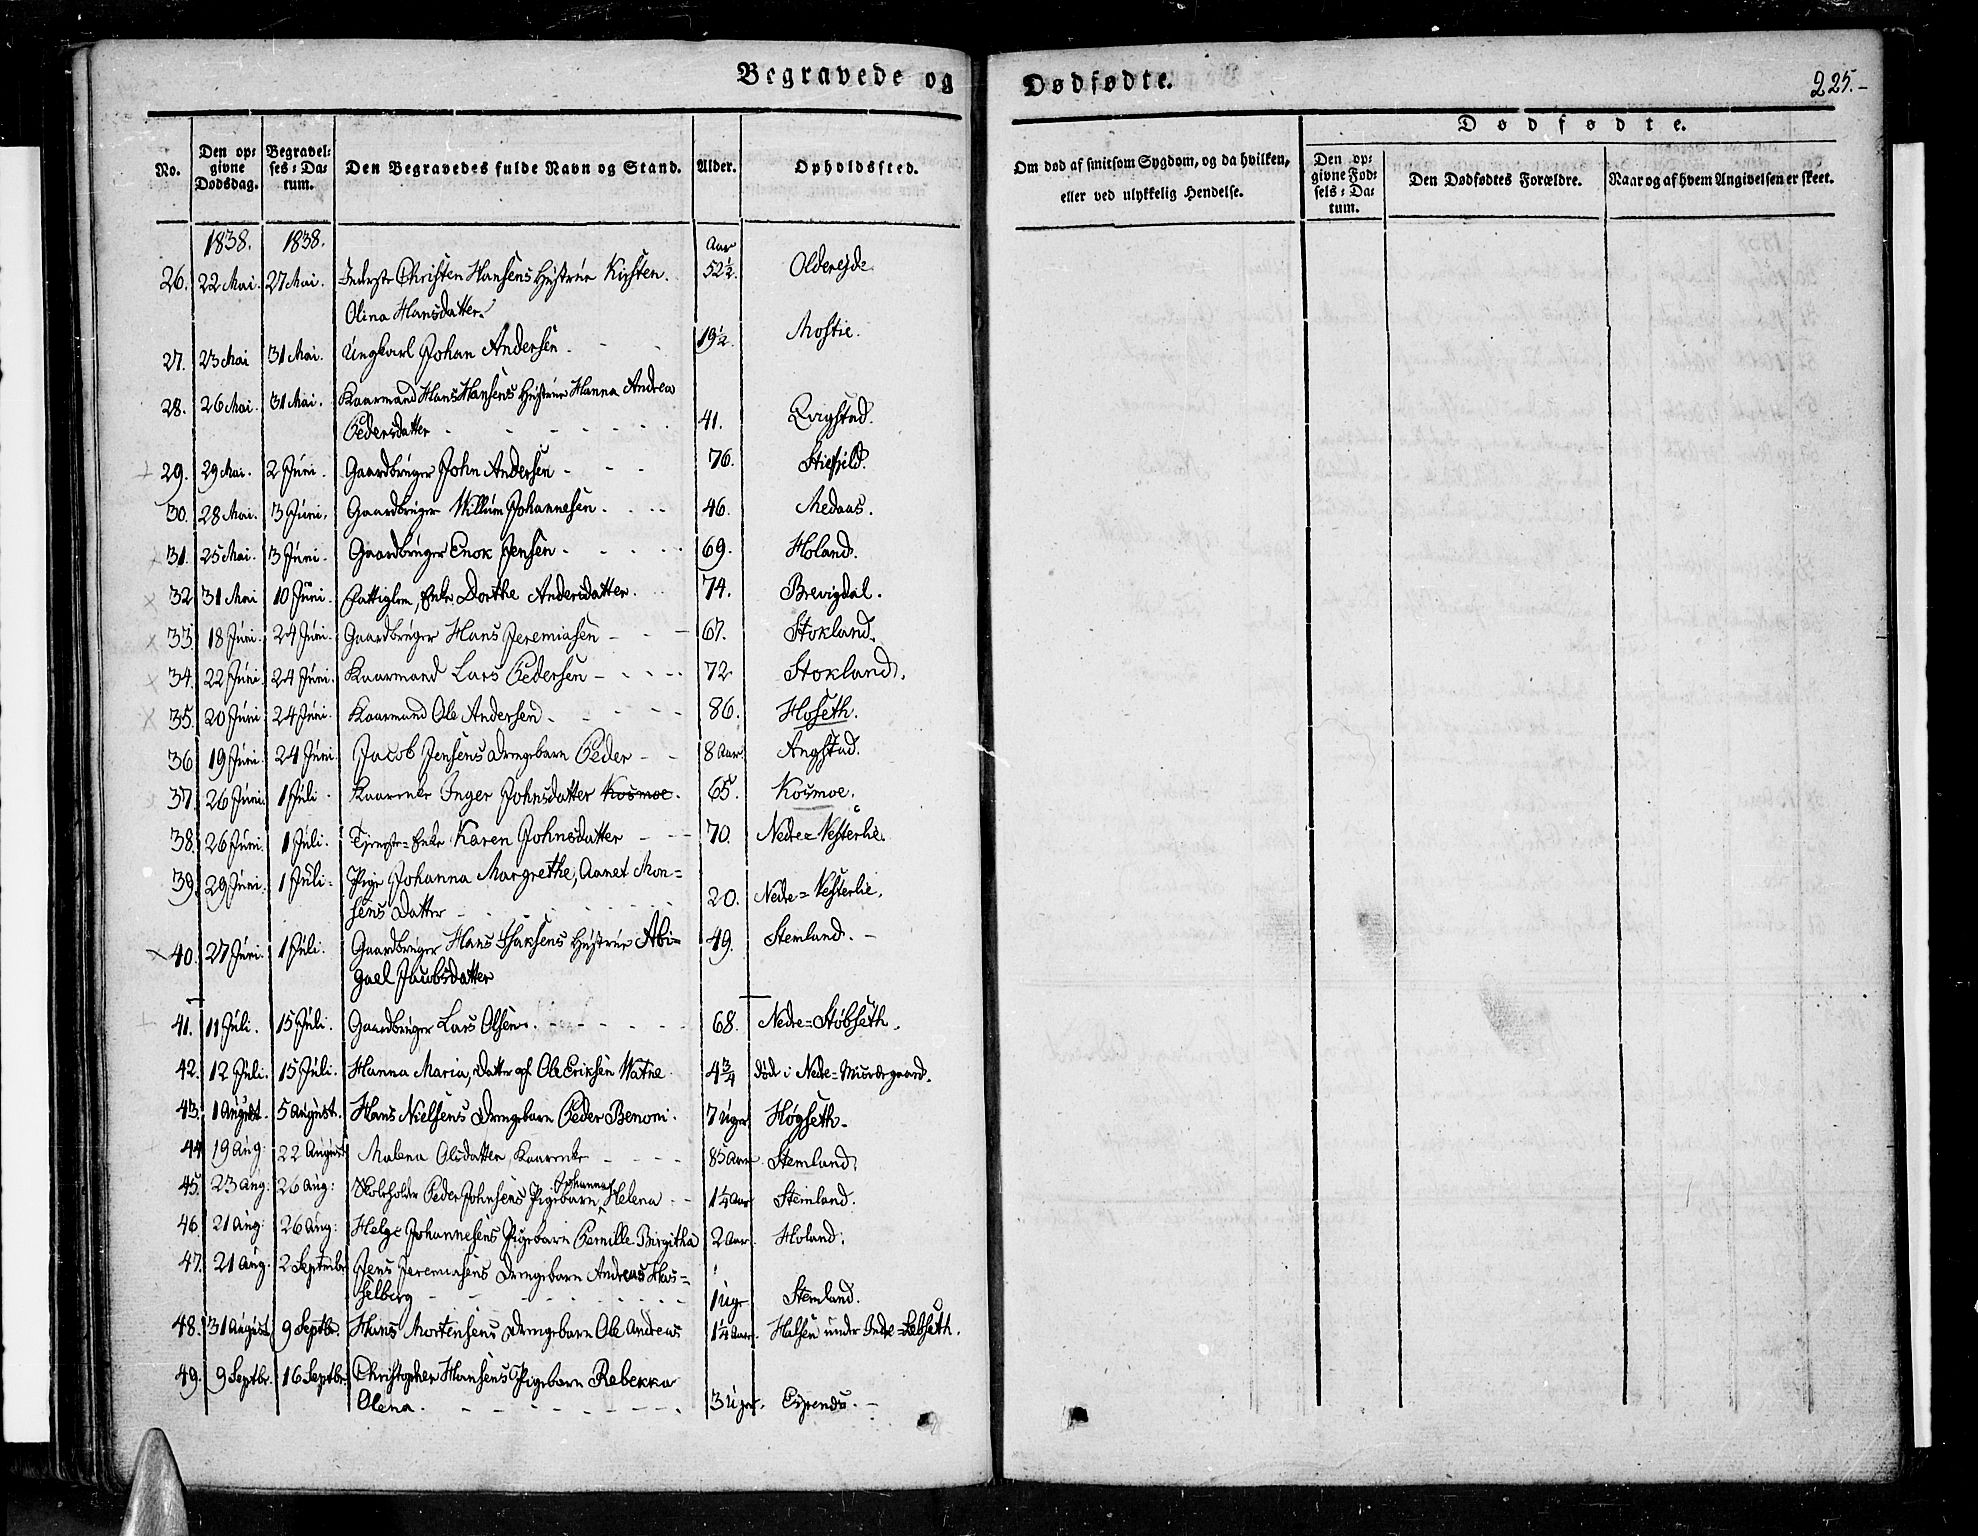 Begravede og
Dødfødte.
225.-
No.
Den op-
givne
Dødsdag.
Begravel-
ses-Da-
tum.
Den Begravedes fulde Navn og Stand.
Alder.
Opholdssted.
Om død af smitsom Sygdom, og da hvilken,
eller ved ulykkelig Hendelse.
Dødfødte.
Den op-
givne Fød-
sels-Da-
tum.
Den Dødfødtes Forældre.
Naar og af hvem Angivelsen er skeet.
1838. 1838. Aar
26. 22 Mai. 27 Mai. Inderste Christen Hansens Hustrue Kirsten 52½. Olderejde
Olina Hansdatter.
27. 23 Mai 31 Mai. Ungkarl Johan Andersen. 19½. Mostie.
28. 26 Mai. 31 Mai. Kaarmand Hans Hansens Hustrue Hanna Andrea
Pedersdatter 41. Qvigstad.
29. 29 Mai. 2 Juni. Gaardbruger John Andersen 76. Stiefjeld.
30. 28 Mai. 3 Juni. Gaardbruger Willum Johannesen. 46. Medaas.
31. 25 Mai. 3 Juni. Gaardbruger Enok Jensen 69. Holand.
32 31 Mai 10 Juni. Fattiglem, Enke Dorthe Andersdatter. 74. Brevigdal.
33. 18 Juni. 24 Juni. Gaardbruger Hans Jeremiasen 67. Stokland.
34. 22 Juni. 24 Juni. Kaarmand Lars Pedersen 72 Stokland.
35. 20 Juni 24 Juni. Kaarmand Ole Andersen. 86. Hoseth.
36 19 Juni. 24 Juni Jacob Jensens Drengebarn Peder 8 Aar. Angstad.
37. 26 Juni. 1 Juli. Kaarenke Inger Johnsdatter Kosmoe. 65. Kosmoe.
38. 26 Juni. 1 Juli. Tjeneste-Enke Karen Johnsdatter 70. Nedre=Vesterlie.
39. 29 Juni. 1 Juli. Pige Johanna Margrethe, Aanet Mon=
sens Datter 20. Nedre=Vesterlie.
40. 27 Juni. 1 Juli. Gaardbruger Hans Isaksens Hustrue Abi= 49. Stemland.
gael Jacobsdatter
41. 11 Juli. 15 Juli. Gaardbruger Lars Olsen. 68. Nedre=Støbseth.
42. 12 Juli. 15 Juli. Hanna Maria, Datter af Ole Eriksen Watne 4¾ død i Nedre=Misværgaard.
43. 1 August. 5 August. Hans Nielsens Drengebarn Peder Benoni. 7 Uger Høgseth.
44 19 Aug: 22 August Malena Olsdatter, Kaarenke 85 Aar Stemland.
45. 23 Aug: 26 Aug: Skoleholder Peder Johnsens Pigebarn Johanna Helena 1¼ Aar Stemland.
46. 21 Aug: 26 Aug: Helge Johannesens Pigebarn Pernille Birgitha 2 Aar. Holand.
47. 21 Aug. 2 Septembr Jens Jeremiasens Drengebarn Andreas Has=
selberg 1 Uge Stemland.
48. 31 August. 9 Septbr. Hans Mortensens Drengebarn Ole Andreas 1¼ Aar. Halsen under Indre=Løbseth.
49. 9 Septbr. 16 Septbr. Christopher Hansens Pigebarn Rebekka
Olena. 3 Uger. Espenæs.